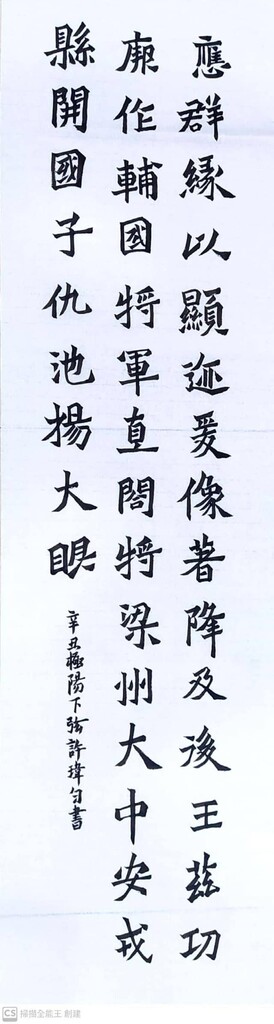 應群緣以顯迹爰像著降及後王茲功
厥作輔國將軍直閤將梁州大中安戎
縣開國子仇池揚大眼
辛丑極陽下弦許瑋勻書
CS 掃描全能王 創建